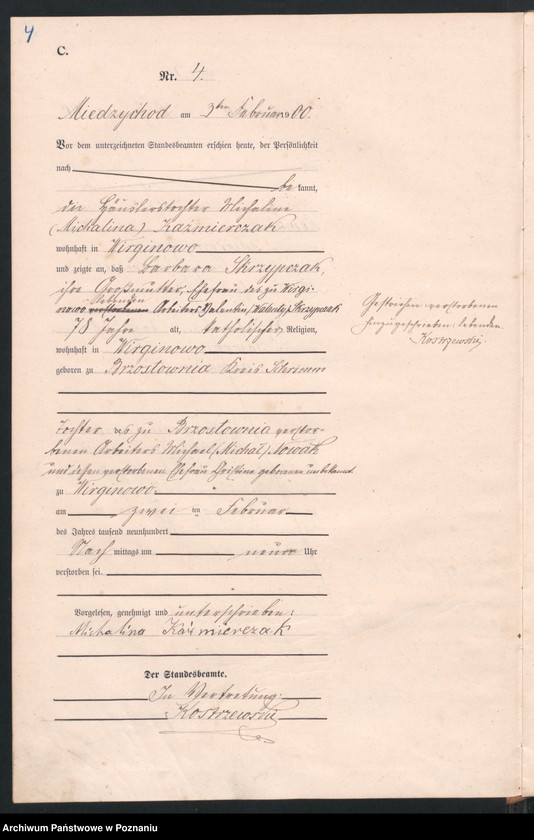 4
C.
Nr. 4.
Miedzychod am 3ten Februar 1900.
Vor dem unterzeichneten Standesbeamten erschien heute, der Persönlichkeit
nach
be kannt,
die Häuslerstochter Michaline
(Michalina) Kaźmierczak
wohnhaft in Wirginowo
und zeigte an, daß Barbara Skrzypczak,
ihre Großmutter, Ehefrau des zu Wirgi-
lebenden
nowo verstorbenen Arbeiters Valentin (Walenty) Skrzypczak
Gestrichen verstorbenen
hinzugeschrieben: lebenden.
Kostrzewski.
78 Jahre alt, katholischer Religion,
wohnhaft in Wirginowo
geboren zu Brzostownia Kreis Schrimm
Tochter des zu Brzostownia verstor-
benen Arbeiters Michael (Michał) Nowak
und dessen verstorbenen Ehefrau Christine geborenen unbekannt
zu Wirginowo
am zwei ten Februar
des Jahres tausend neunhundert
Nach mittags um neun Uhr
verstorben sei.
Vorgelesen, genehmigt und unterschrieben:
Michalina Kaźmierczak
Der Standesbeamte.
In Vertretung.
Kostrzewski
Archiwum Państwowe w Poznaniu